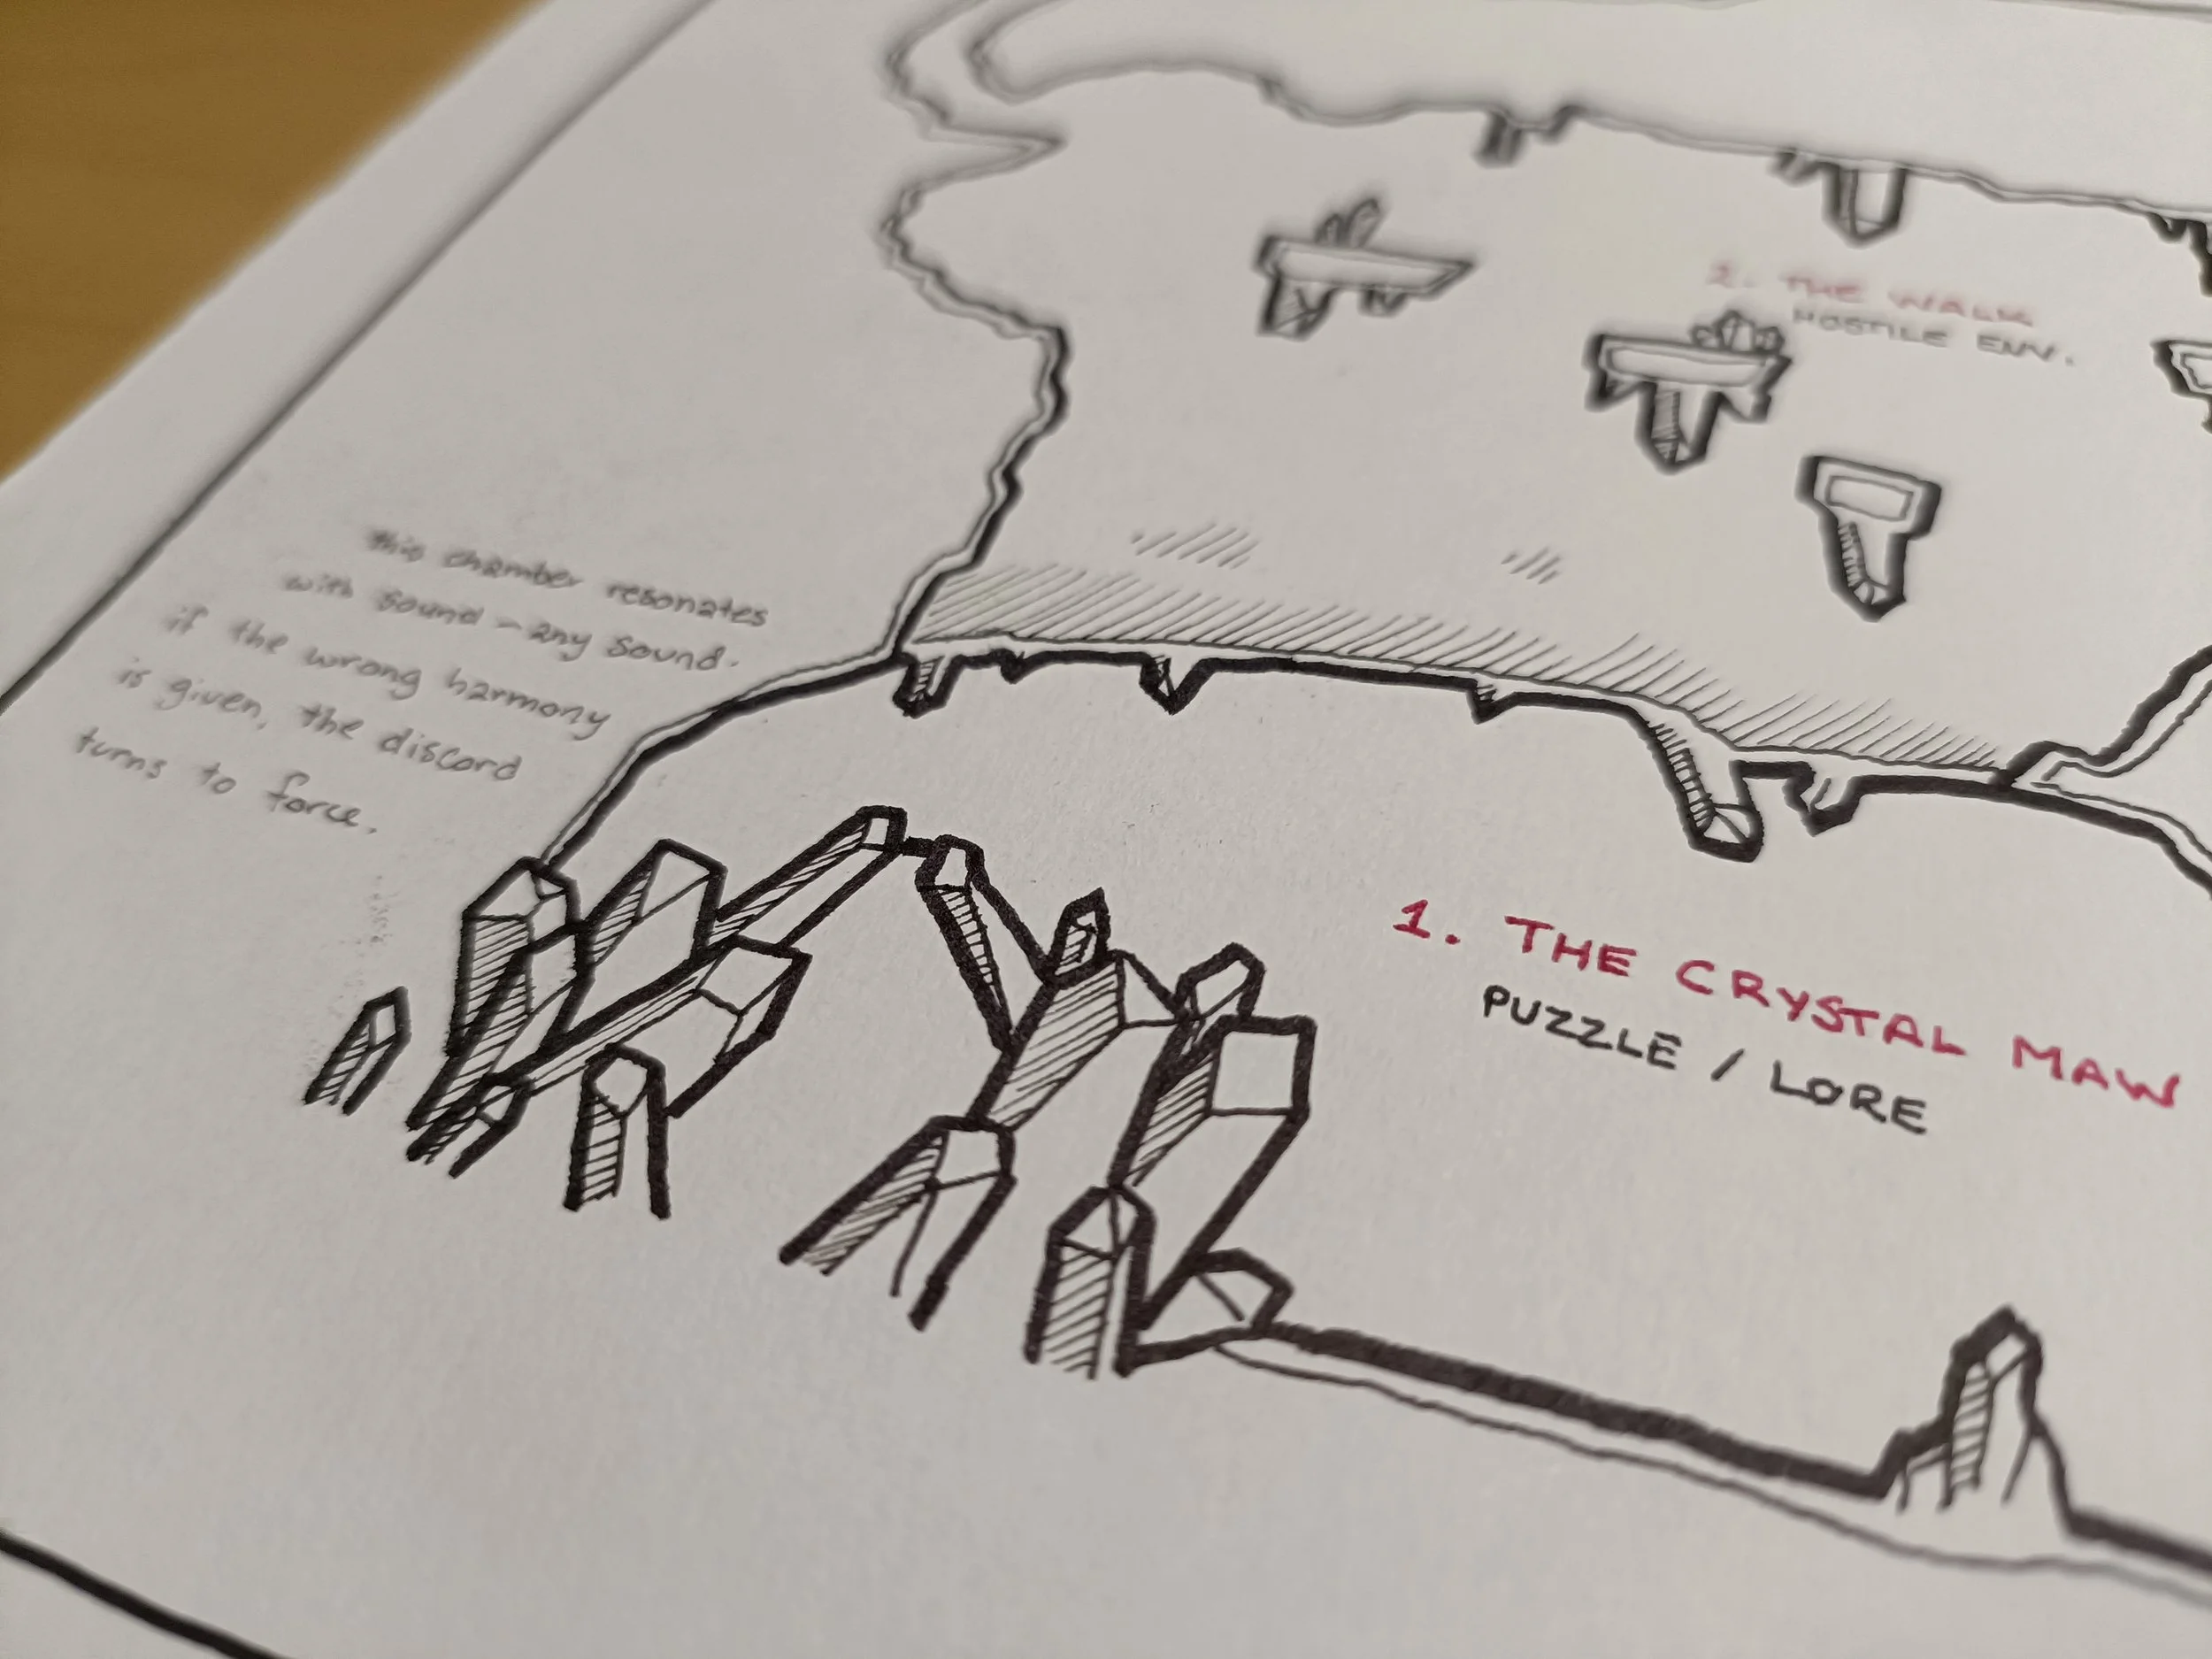 2. THE WALK
HOSTILE ENV.
this chamber resonates
with sound - any sound.
if the wrong harmony
is given, the discord
turns to force.
1. THE CRYSTAL MAW
PUZZLE / LORE